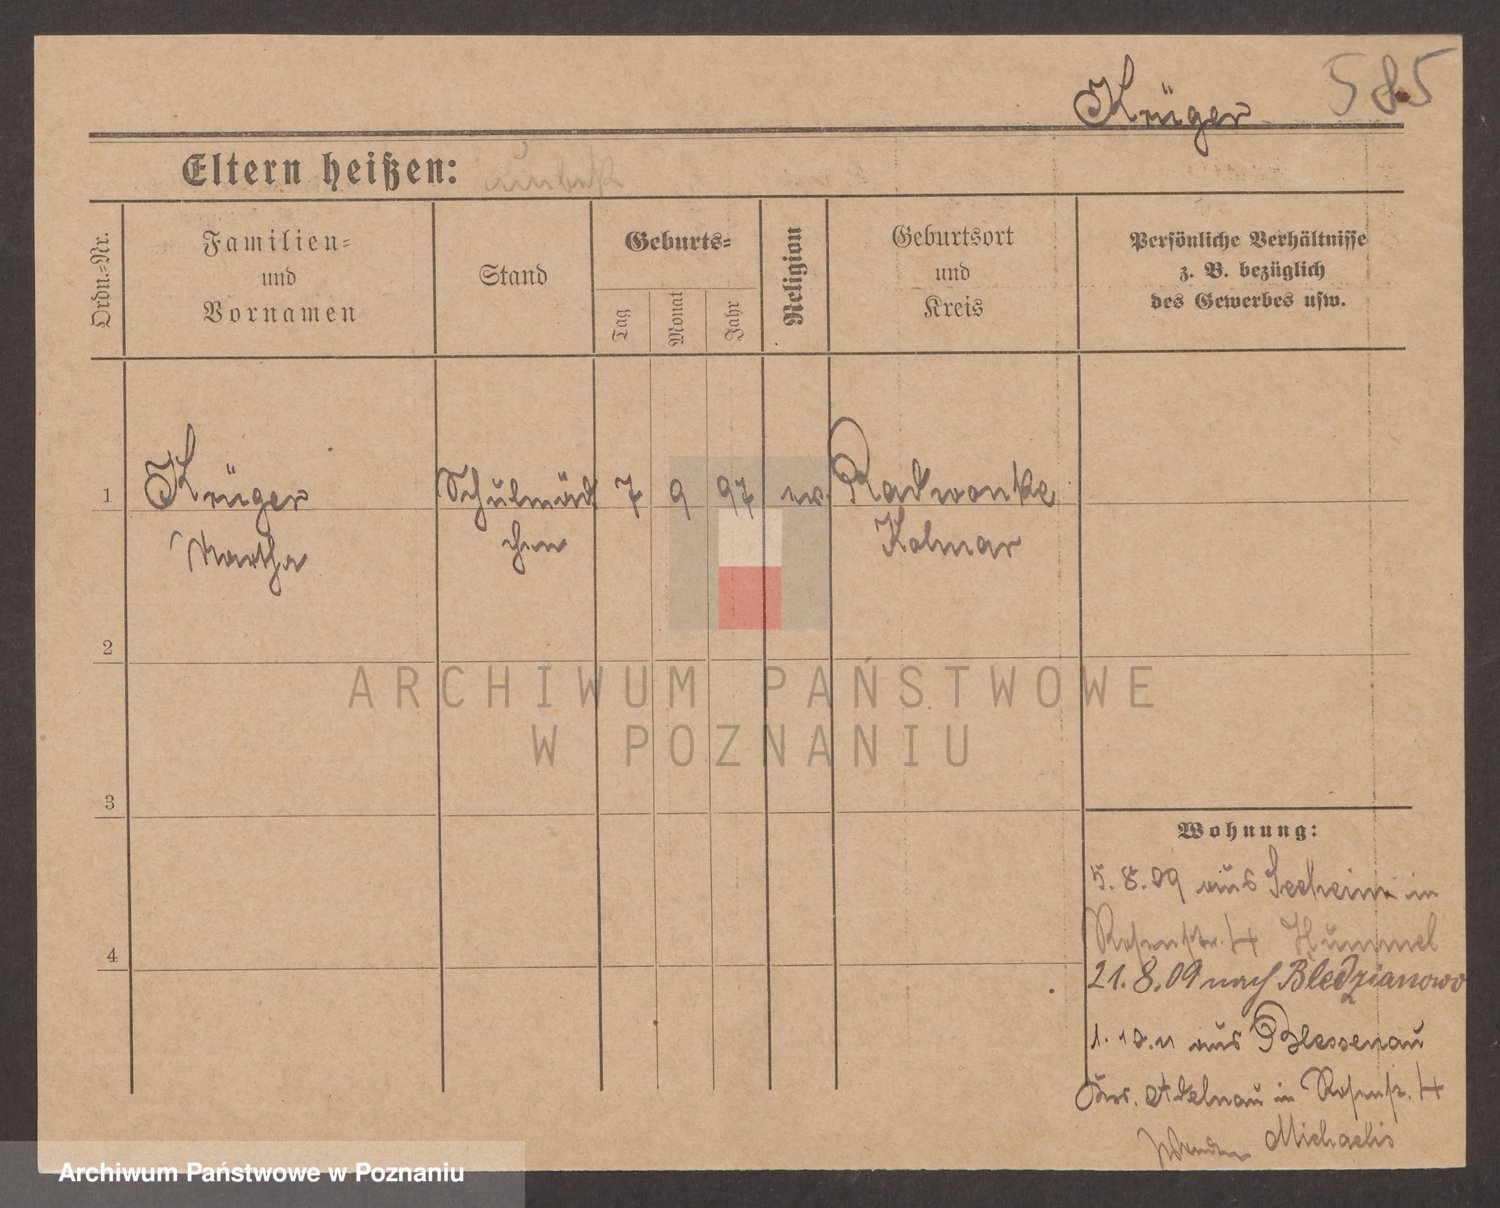 Krüger 585
Eltern heißen:
Ordn.=Nr.
Familien=
und
Vornamen
Stand
Geburts=
Tag
Monat
Jahr
Religion
Geburtsort
und
Kreis
Persönliche Verhältnisse
z. B. bezüglich
des Gewerbes usw.
1 Krüger Schulmäd 7 9 97 ev. Radwonke
Martha chen Kolmar
2
3
4
ARCHIWUM PAŃSTWOWE
W POZNANIU
Wohnung:
5.8.09 aus Seeheim in
Rosenstr. 4 Hummel
21.8.09 nach Bledzianowo
1.10.11 aus Blessenau
Krs. Adelnau in Rosenstr. 4
Michaelis
Archiwum Państwowe w Poznaniu